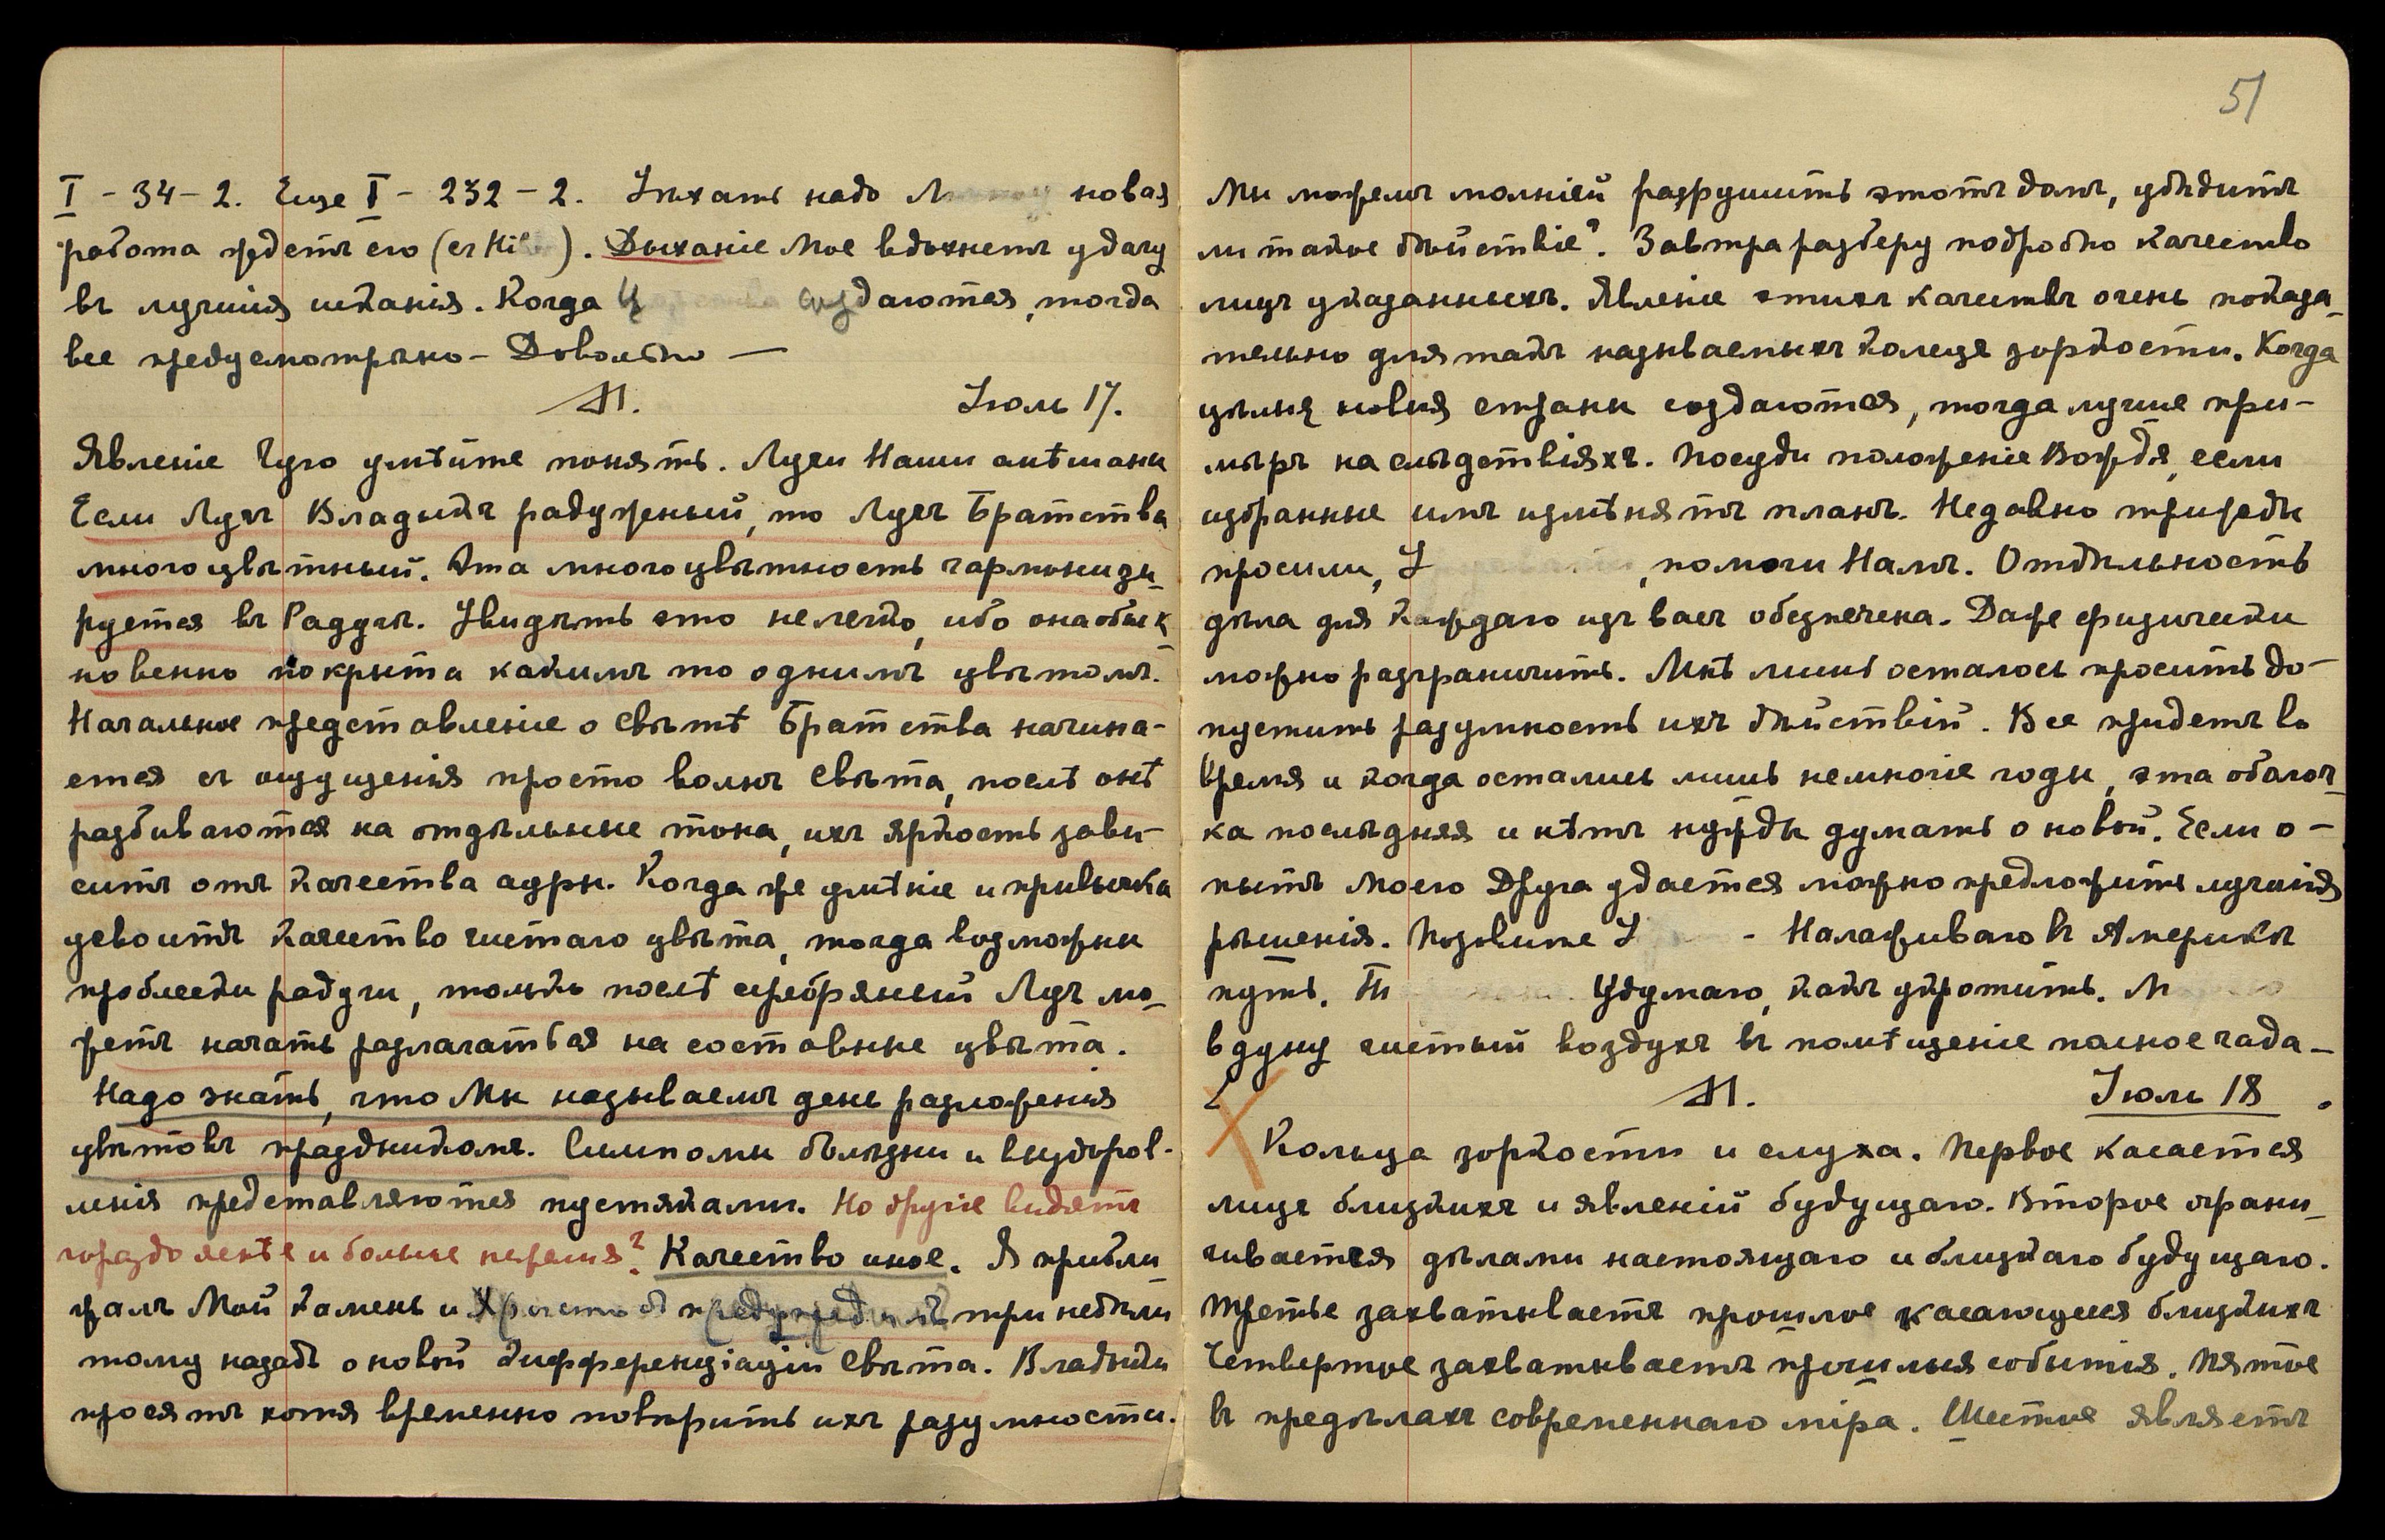 I - 34 - 2. Еще I - 232 - 2. Ѣхать надо новая
работа ждетъ его (er Hi ). Дыханіе Мое вдохнетъ удачу
въ лучшія исканія. Когда создаются, тогда
все предусмотрѣно - Довольно —
М. Іюль 17.
Явленіе Чуро умѣйте понять. Лучи Наши
Если Лучъ Владыкъ радужный, то Лучъ Братства
многоцвѣтный. Эта многоцвѣтность гармонизи-
руется въ Радугѣ. Увидѣть это нелегко, ибо она обык-
новенно покрыта какимъ то однимъ цвѣтомъ.
Начальное представленіе о свѣтѣ Братства начина-
ется съ ощущенія просто волнъ свѣта, послѣ онѣ
разбиваются на отдѣльные тона, ихъ яркость зави-
ситъ отъ качества ауры. Когда же умѣніе и привычка
усвоитъ качество чистаго цвѣта, тогда возможны
проблески радуги, только послѣ серебряный Лучъ мо-
жетъ начать разлагаться на составные цвѣта.
Надо знать, что Мы называемъ день разложенія
цвѣтовъ праздникомъ. Симптомы болѣзни и выздоров-
ленія представляются пустяками. Но другіе видятъ
гораздо яснѣе и больше перемѣ? Качество иное. Я прибли-
жалъ Мой Камень и Христосъ предупредилъ три недѣли
тому назадъ о новой дифференціаціи свѣта. Владыки
просятъ хотя временно повѣрить ихъ разумности.
51
Мы можемъ молніей разрушить этотъ домъ, убѣдитъ
ли такое дѣйствіе? Завтра разберу подробно качество
лицъ указанныхъ. Явленіе этихъ качествъ очень показа-
тельно для такъ называемыхъ колецъ зоркости. Когда
цѣлыя новыя страны создаются, тогда лучше при-
мѣръ на слѣдствіяхъ. Посуди положеніе Вождя, если
избранные имъ измѣнятъ планъ. Недавно трижды
просили, , помоги Намъ. Отдѣльность
дѣла для каждаго изъ васъ обезпечена. Даже физически
можно разграничить. Мнѣ лишь осталось просить до-
пустить разумность ихъ дѣйствій. Все придетъ во
время и когда остались лишь немногіе годы, эта оболоч-
ка послѣдняя и нѣтъ нужды думать о новой. Если о-
пытъ Моего Друга удается можно предложить лучшія
рѣшенія. Позовите - Налаживаю въ Америкѣ
путь. Удумаю, какъ укротить.
вдуну чистый воздухъ въ помѣщеніе полное чада -
М. Іюль 18.
Кольца зоркости и слуха. Первое касается
лицъ близкихъ и явленій будущаго. Второе ограни-
чивается дѣлами настоящаго и близкаго будущаго.
Третье захватываетъ прошлое касающееся близкихъ
Четвертое захватываетъ прошлыя событія. Пятое
въ предѣлахъ современнаго міра. Шестое являетъ